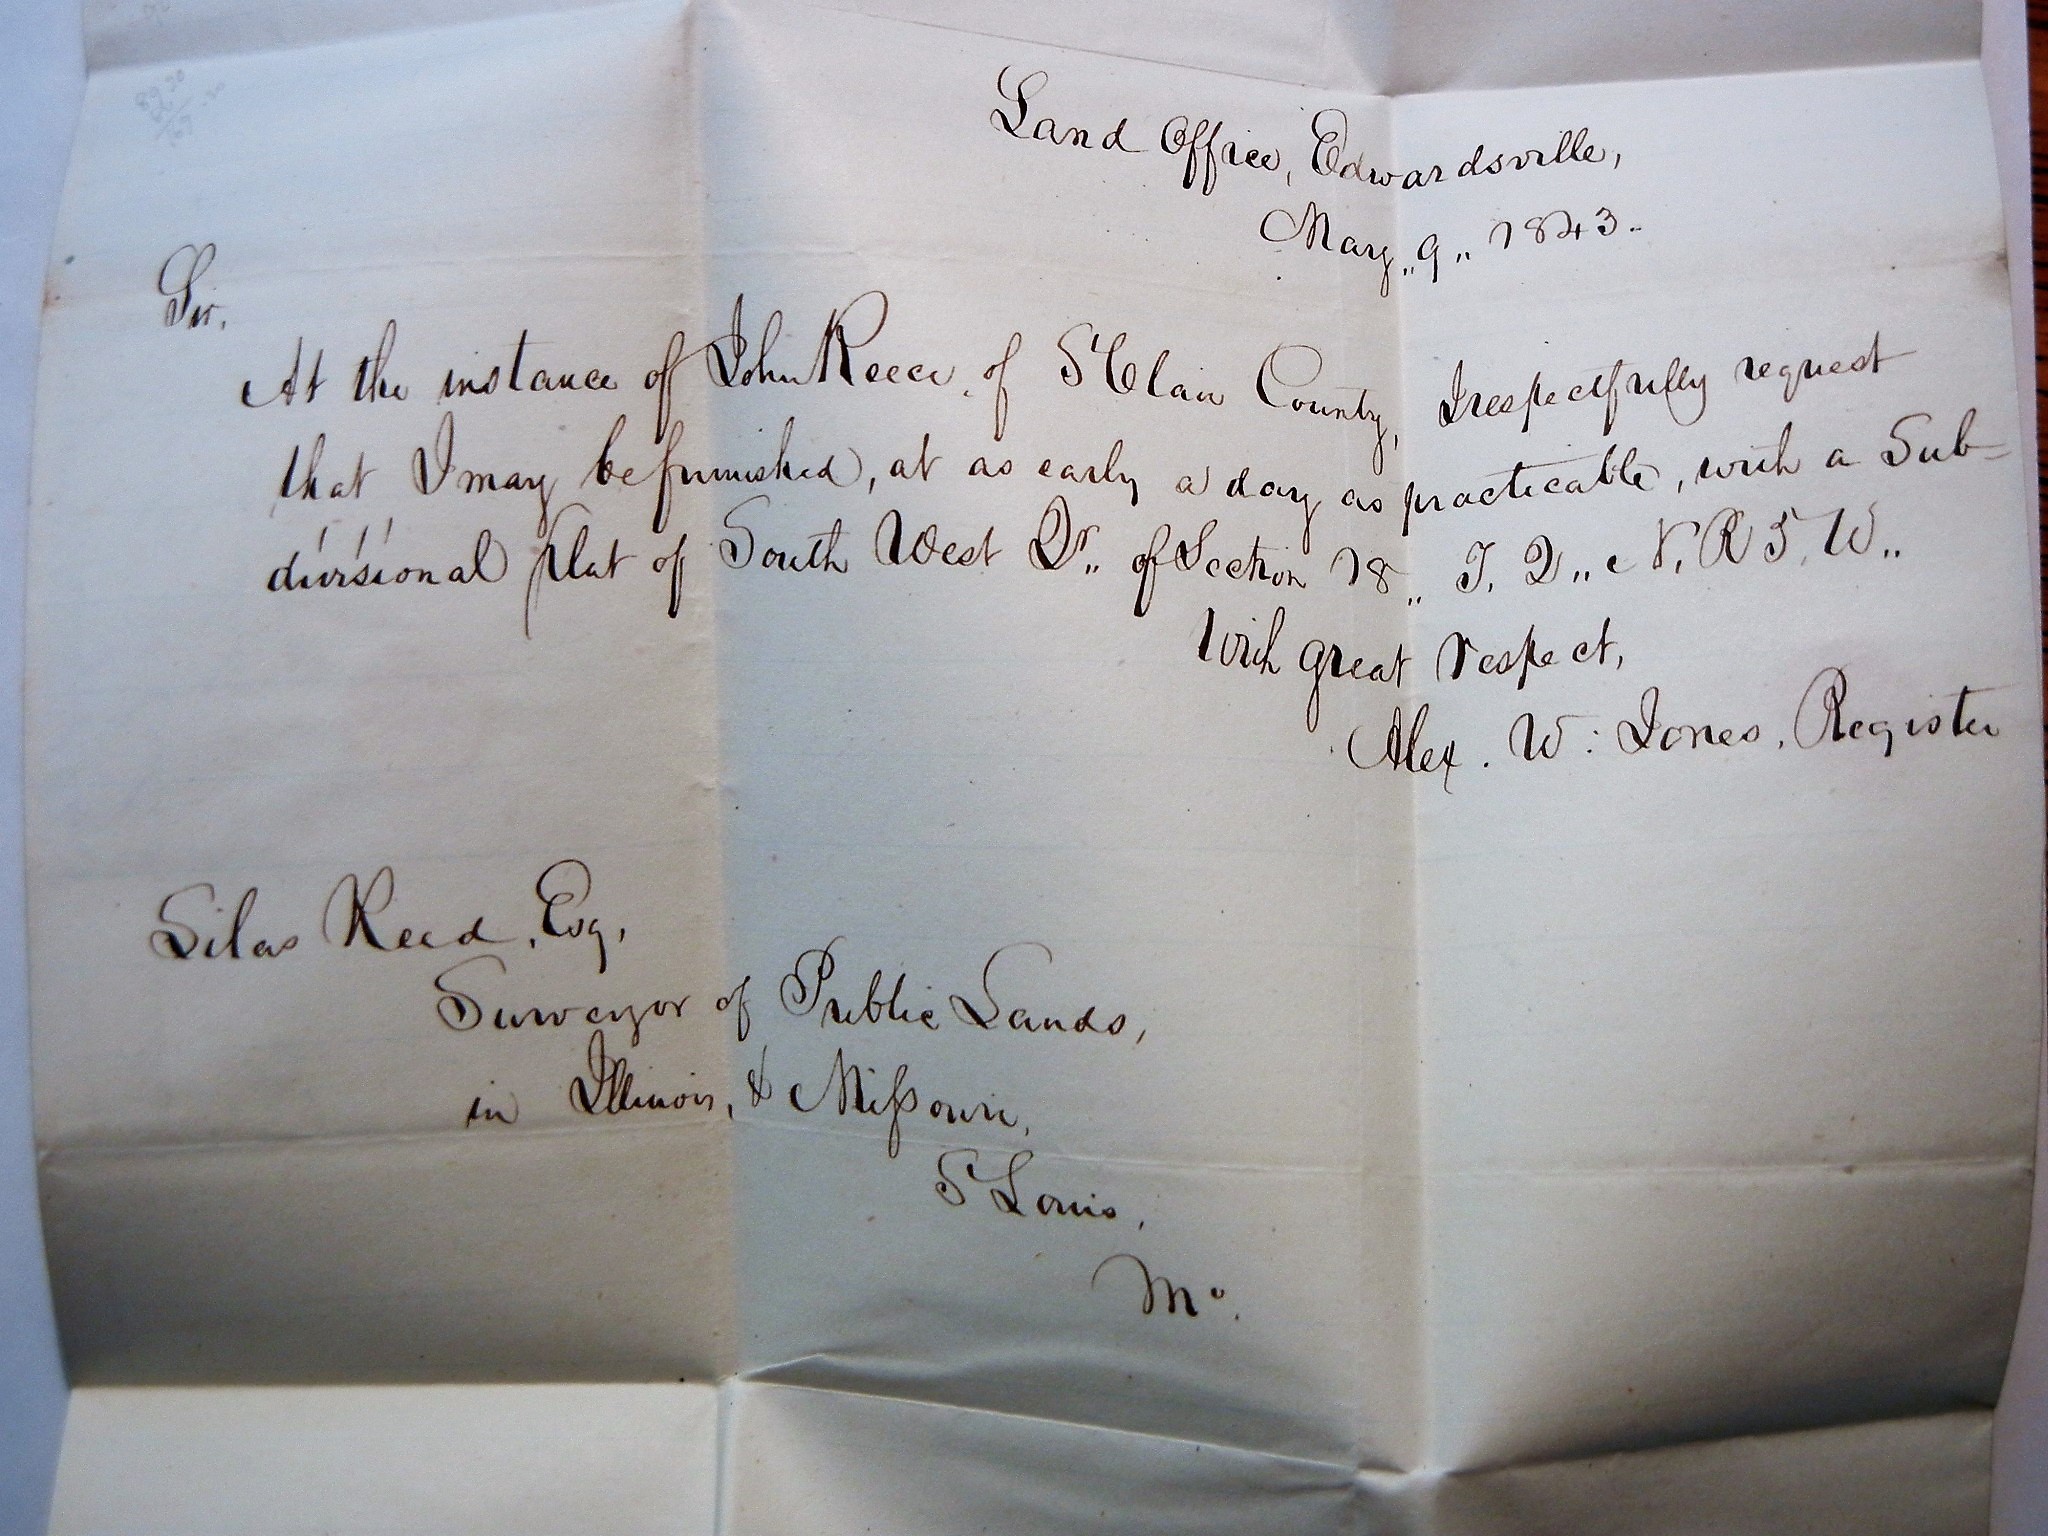 Land Office, Edwardsville,
May „ 9 „ 1843.
Sir.
At the instance of John Reece, of St Clair County, I respectfully request
that I may be furnished, at as early a day as practicable, with a Sub=
divisional Plat of South West Qr. of Section 18 „ T. 2 „ N. R 5, W „
With great respect,
Alex. W: Jones, Register
Silas Reed, Esq,
Surveyor of Public Lands,
in Illinois, & Missouri,
St Louis,
Mo.